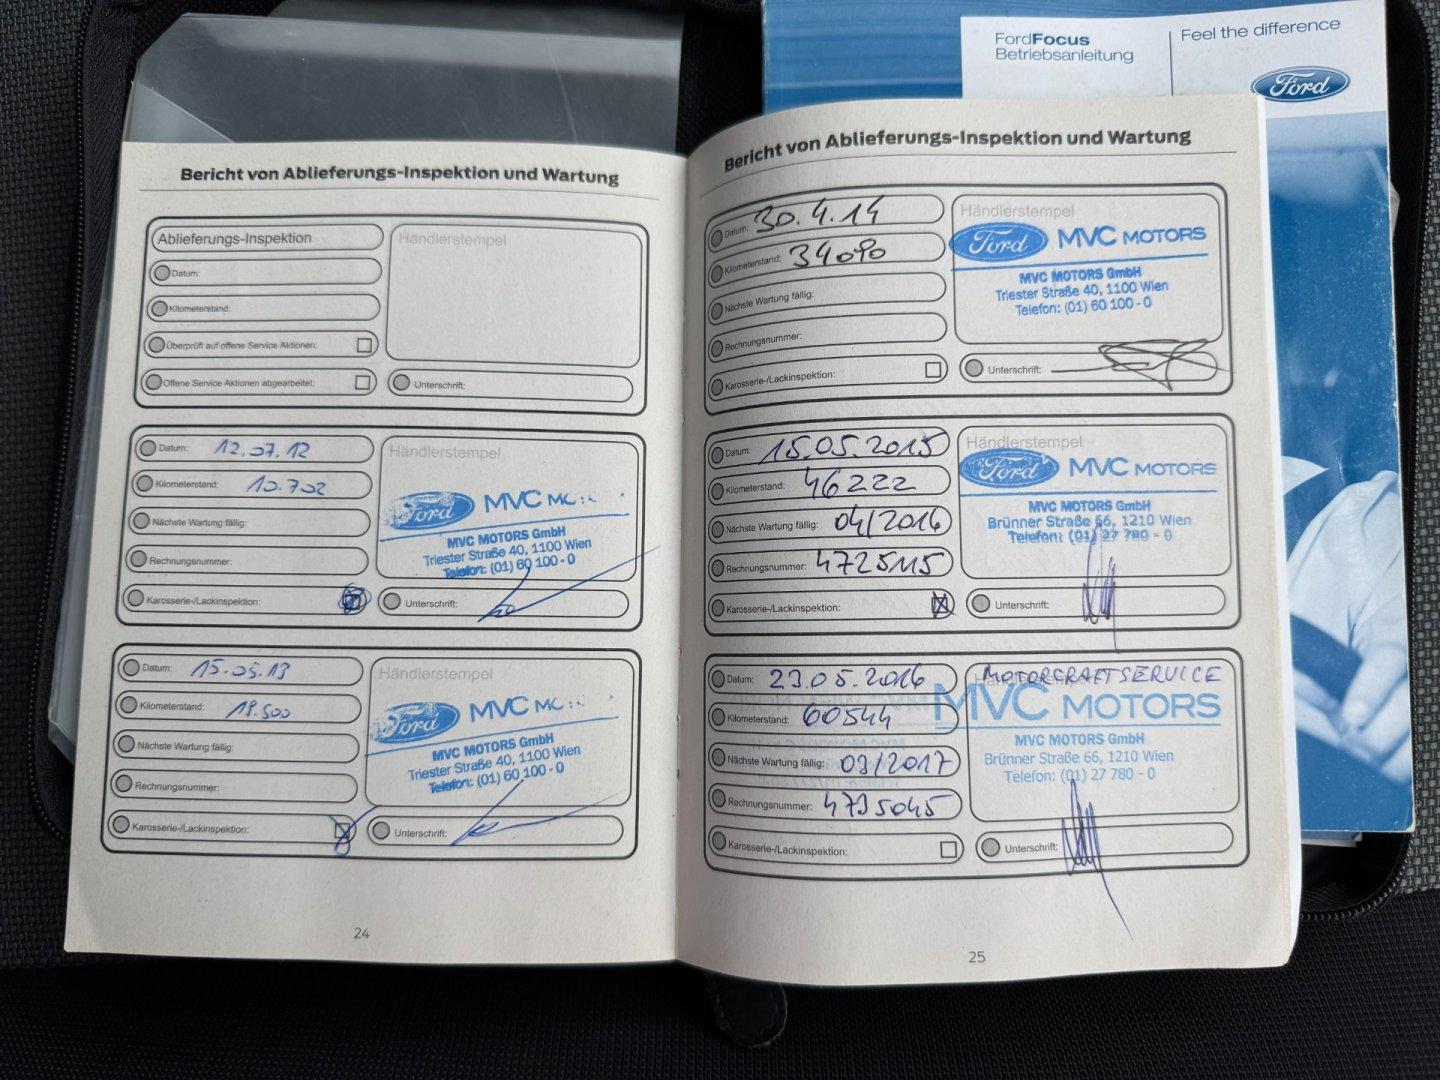 FordFocus
Betriebsanleitung
Feel the difference
Ford
Bericht von Ablieferungs-Inspektion und Wartung
Ablieferungs-Inspektion
Händlerstempel
Datum:
Kilometerstand:
Überprüft auf offene Service Aktionen:
Offene Service Aktionen abgearbeitet:
Unterschrift:
Datum: 12.07.12
Kilometerstand: 10.702
Nächste Wartung fällig:
Rechnungsnummer:
Karosserie-/Lackinspektion:
Händlerstempel
Ford MVC
MVC MOTORS GmbH
Triester Straße 40, 1100 Wien
Telefon: (01) 60 100 - 0
Unterschrift:
Datum: 15.05.13
Kilometerstand: 19.500
Nächste Wartung fällig:
Rechnungsnummer:
Karosserie-/Lackinspektion:
Händlerstempel
Ford MVC
MVC MOTORS GmbH
Triester Straße 40, 1100 Wien
Telefon: (01) 60 100 - 0
Unterschrift:
24
Bericht von Ablieferungs-Inspektion und Wartung
Datum: 30.4.14
Kilometerstand: 34090
Nächste Wartung fällig:
Rechnungsnummer:
Karosserie-/Lackinspektion:
Händlerstempel
Ford MVC MOTORS
MVC MOTORS GmbH
Triester Straße 40, 1100 Wien
Telefon: (01) 60 100 - 0
Unterschrift:
Datum: 15.05.2015
Kilometerstand: 46222
Nächste Wartung fällig: 04/2016
Rechnungsnummer: 4725115
Karosserie-/Lackinspektion:
Händlerstempel
Ford MVC MOTORS
MVC MOTORS GmbH
Brünner Straße 66, 1210 Wien
Telefon: (01) 27 780 - 0
Unterschrift:
Datum: 23.05.2016
Kilometerstand: 60544
Nächste Wartung fällig: 03/2017
Rechnungsnummer: 4735045
Karosserie-/Lackinspektion:
MOTORCRAFTSERVICE
MVC MOTORS
MVC MOTORS GmbH
Brünner Straße 66, 1210 Wien
Telefon: (01) 27 780 - 0
Unterschrift:
25